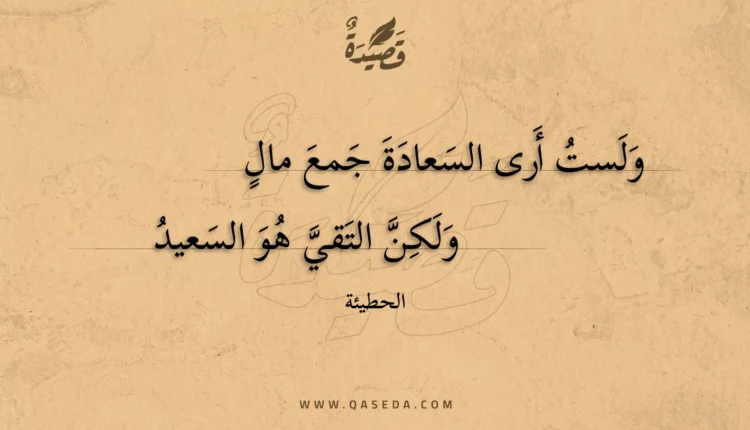 قَصِيْدَةٌ
وَلَستُ أَرى السَعادَةَ جَمعَ مالٍ
وَلَكِنَّ التَقيَّ هُوَ السَعيدُ
الحطيئة
WWW.QASEDA.COM